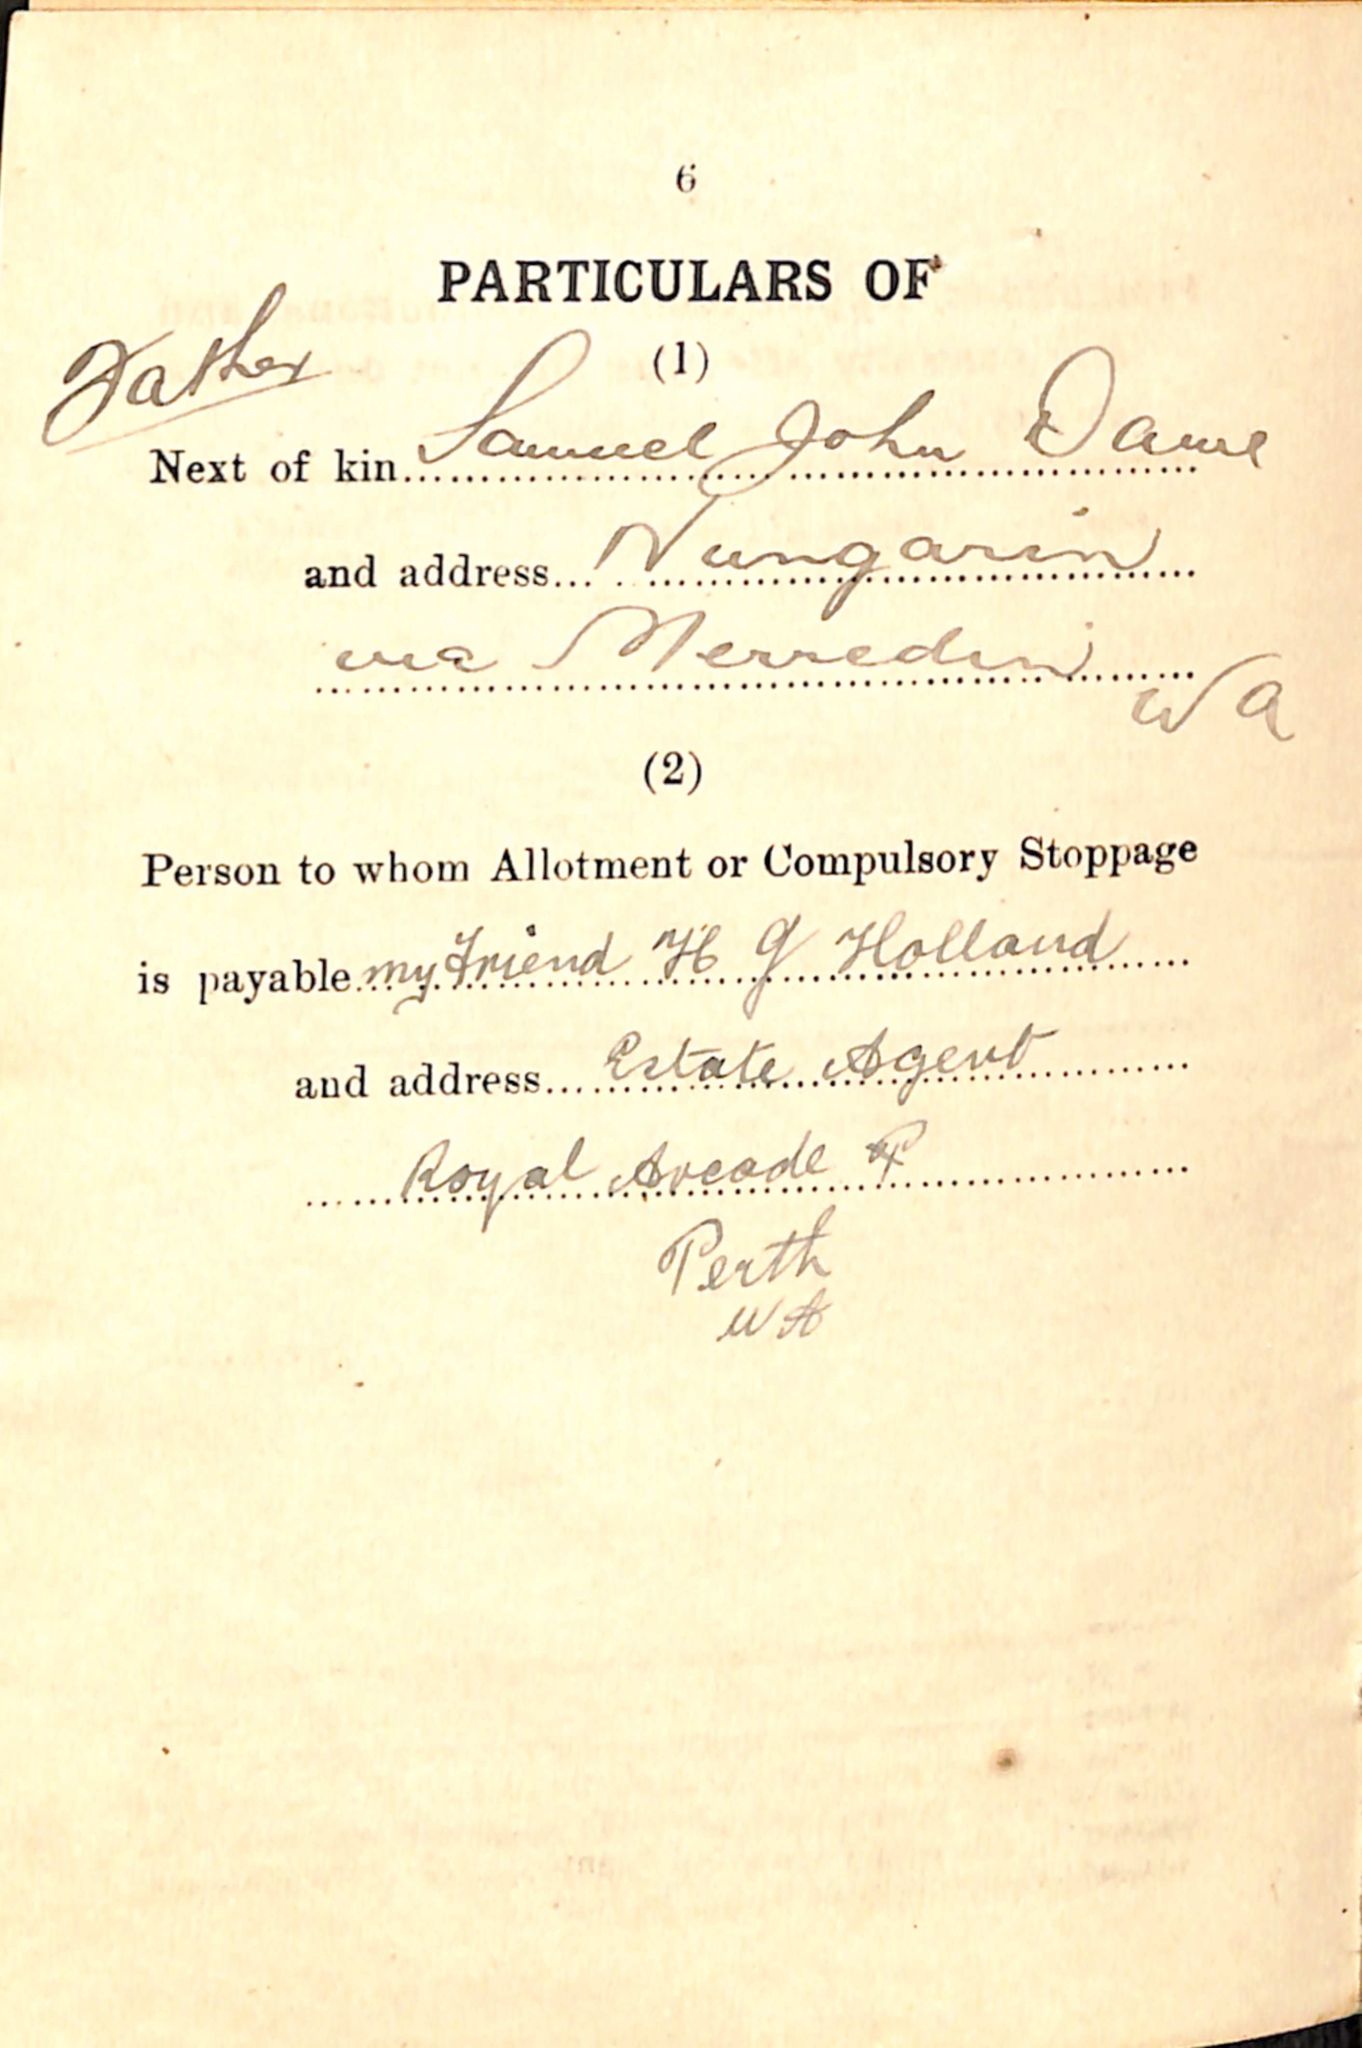 6
PARTICULARS OF
(1)
Father
Next of kin Samuel John Dawe
and address Nungarin
via Merredin
W A
(2)
Person to whom Allotment or Compulsory Stoppage
is payable my friend H G Holland
and address Estate Agent
Royal Arcade P
Perth
W A